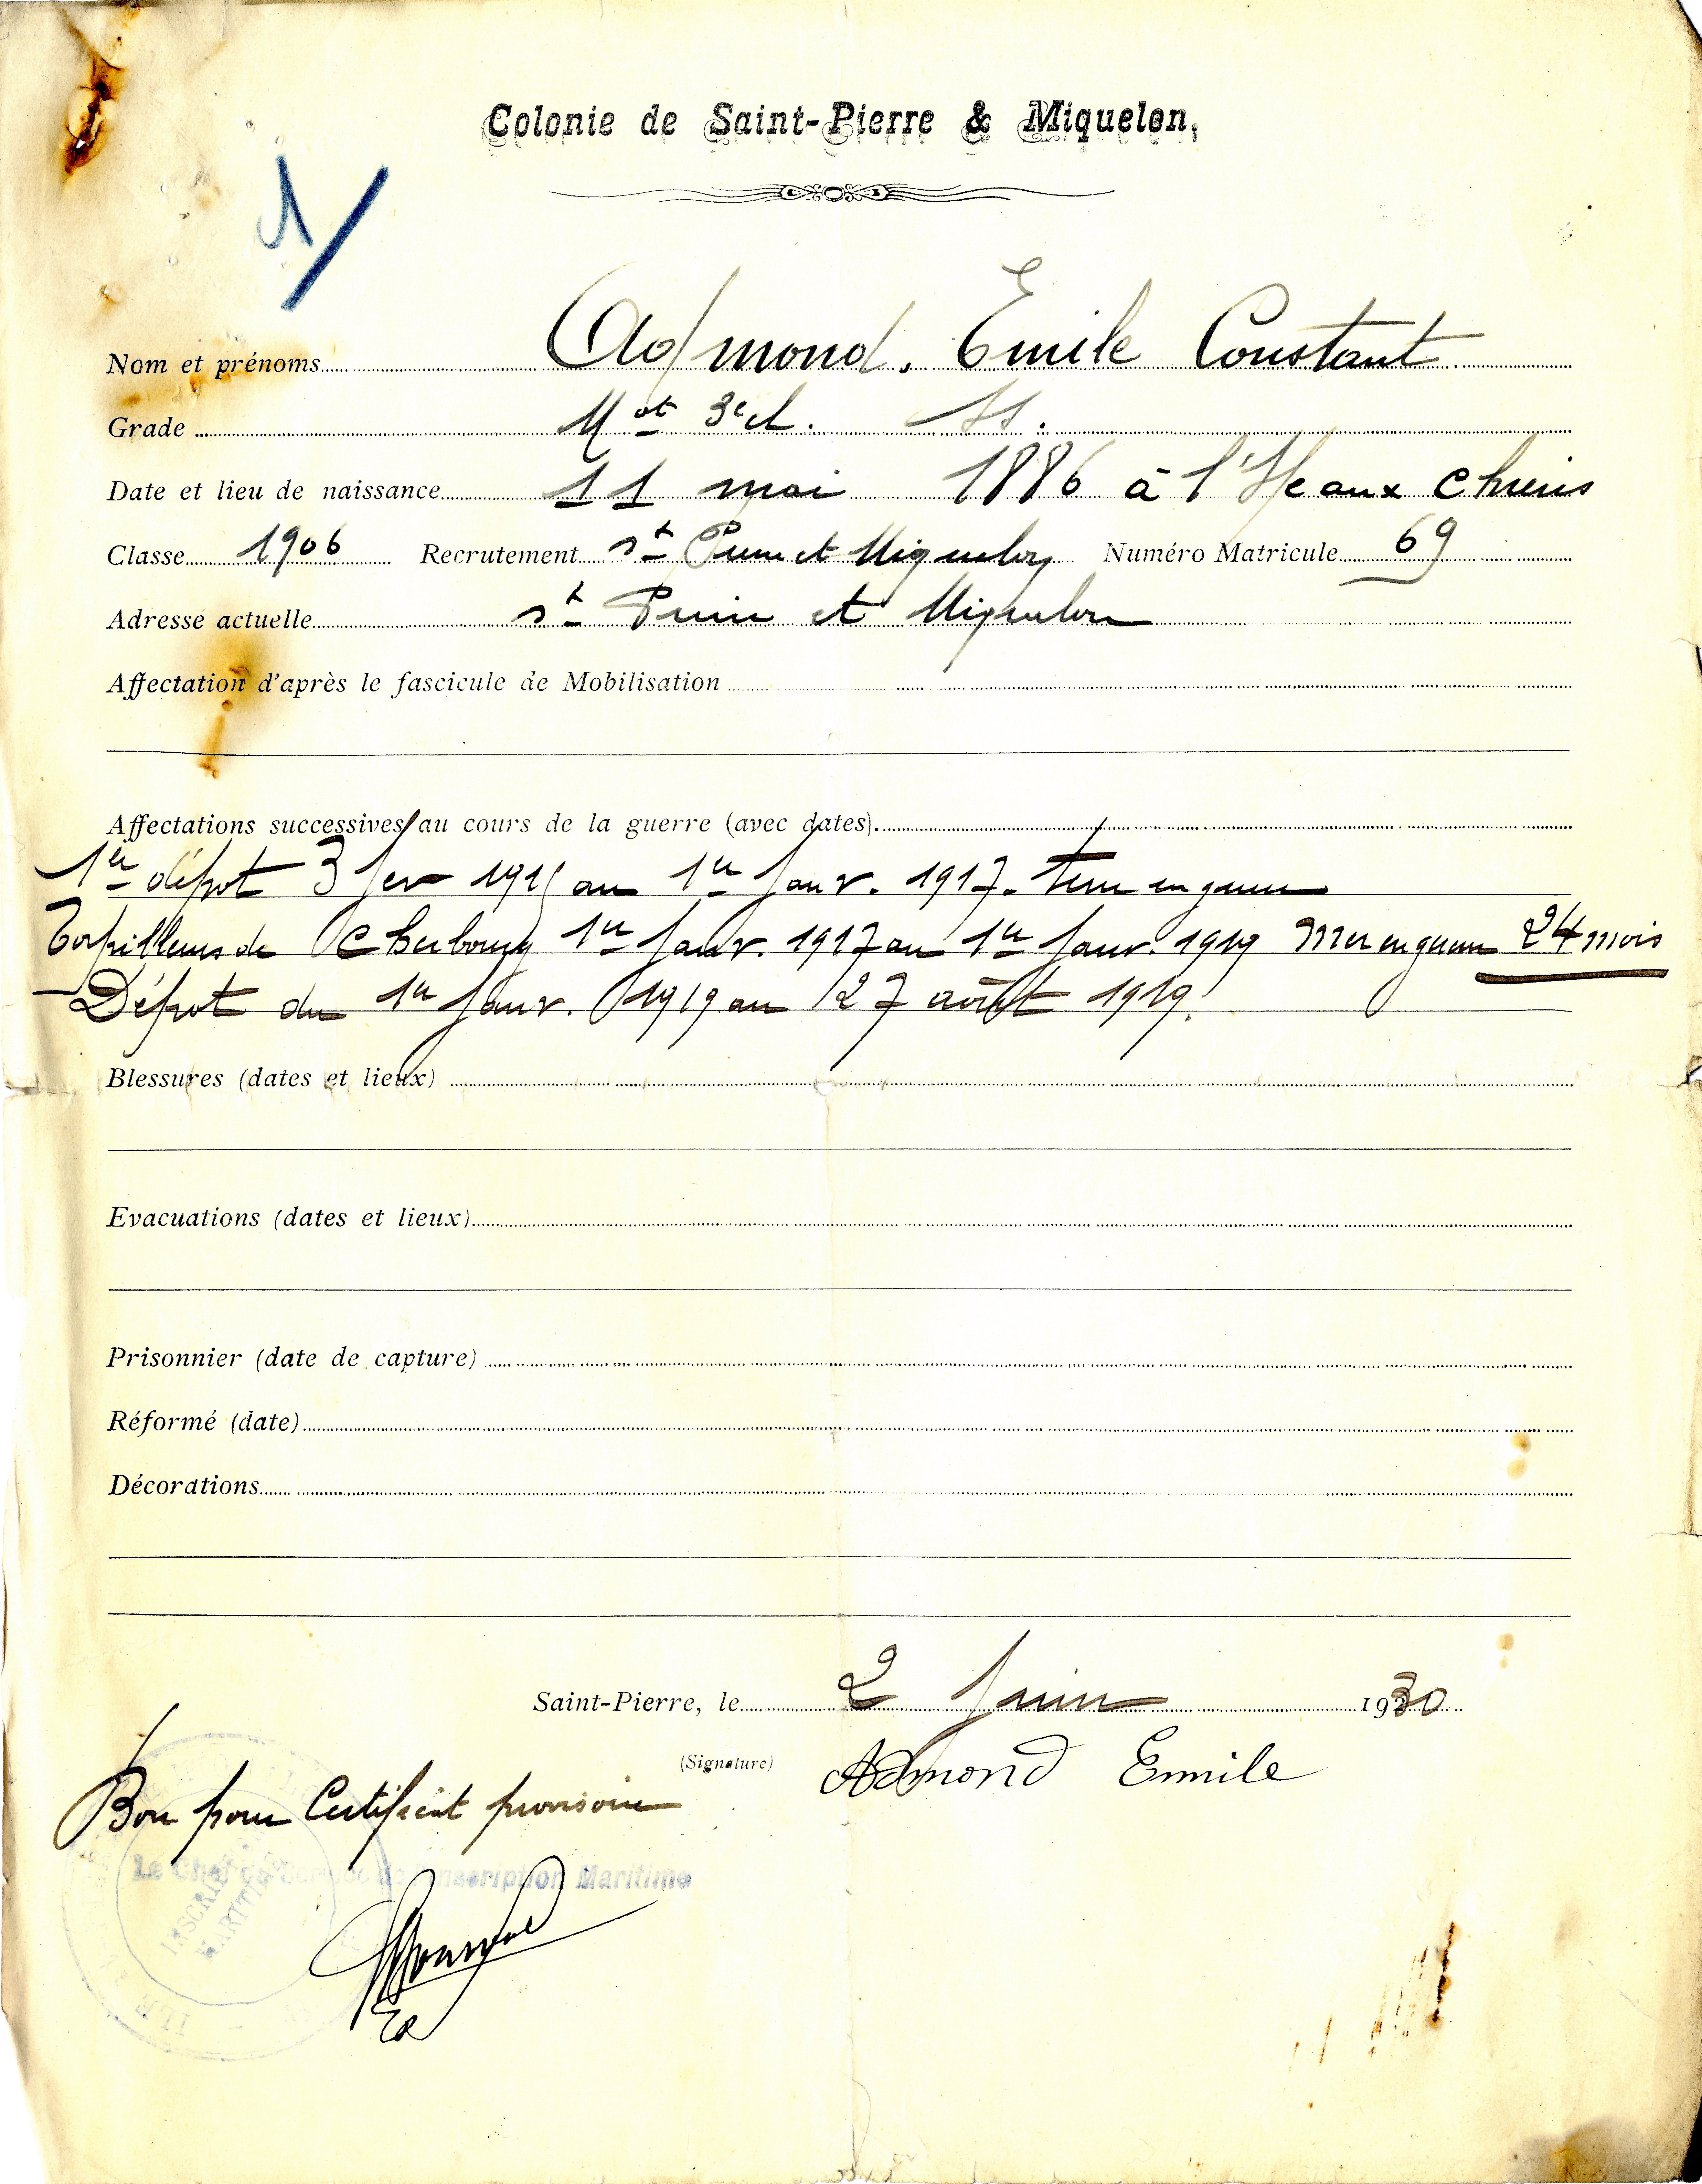 Colonie de Saint-Pierre & Miquelon,
1/
Nom et prénoms Admond. Emile Constant
Grade Mot 3e cl.
Date et lieu de naissance 11 mai 1886 à l'Ile aux Chiens
Classe 1906 Recrutement St Pierre et Miquelon Numéro Matricule 69
Adresse actuelle St Pierre et Miquelon
Affectation d'après le fascicule de Mobilisation
Affectations successives au cours de la guerre (avec dates).
1er dépot 3 fev au 1er Janv. 1917. Terre en guerre
Torpilleurs de Cherbourg 1er Janv. 1917 au 1er Janv. 1919 Mer en guerre 24 mois
Dépot du 1er Janv. 1919 au 27 août 1919.
Blessures (dates et lieux)
Evacuations (dates et lieux)
Prisonnier (date de capture)
Réformé (date)
Décorations
Saint-Pierre, le 2 Juin 1930
(Signature) Admond Emile
Bon pour Certificat provisoire
Le Chef du Service de l'Inscription Maritime
INSCRIPTION
MARITIME